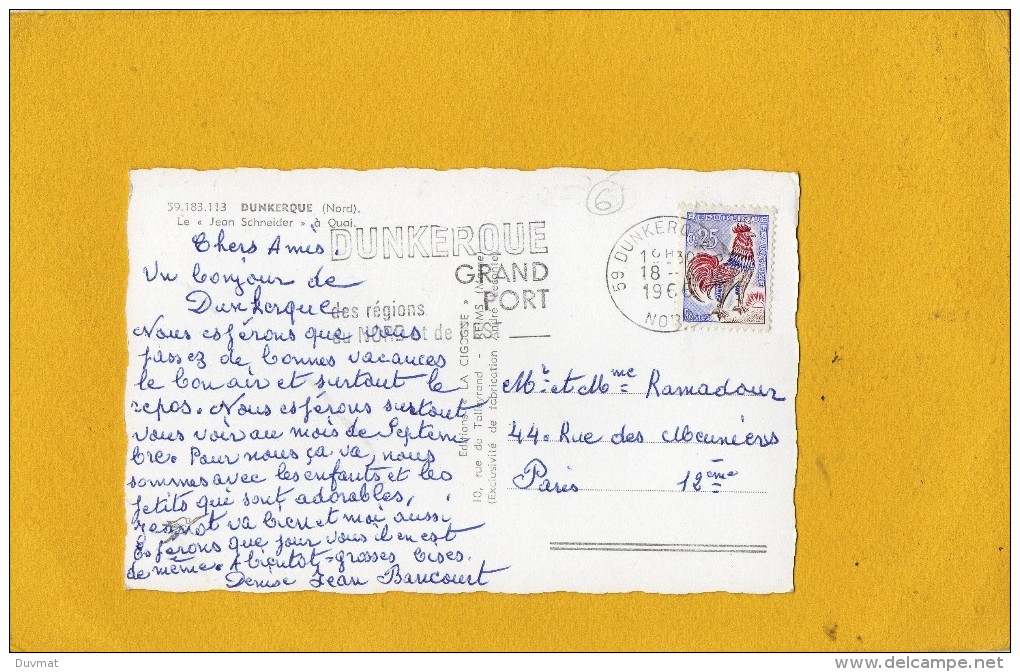 59.183.113 DUNKERQUE (Nord).
Le « Jean Schneider » à Quai.
Chers Amis.
Un bonjour de
Dunkerque
Nous espérons que vous
passez de bonnes vacances
le bon air et surtout le
repos. Nous espérons surtout
vous voir au mois de Septem
bre. Pour nous ça va, nous
sommes avec les enfants et les
petits qui sont adorables,
Jeannot va bien et moi aussi
Espérons que pour vous il en est
de même. A bientôt - grosses bises.
Denise Jean Bancourt
DUNKERQUE
GRAND
PORT
des régions
du NORD et de
Editions LA CIGOGNE
10, rue de Talleyrand - REIMS (Marne)
(Exclusivité de fabrication André Leconte)
6
59 DUNKERQ
18
196
NO
0,25
Mr et Mme Ramadour
44. Rue des Meuniers
Paris 12ème
Duvmat
delcampe.net